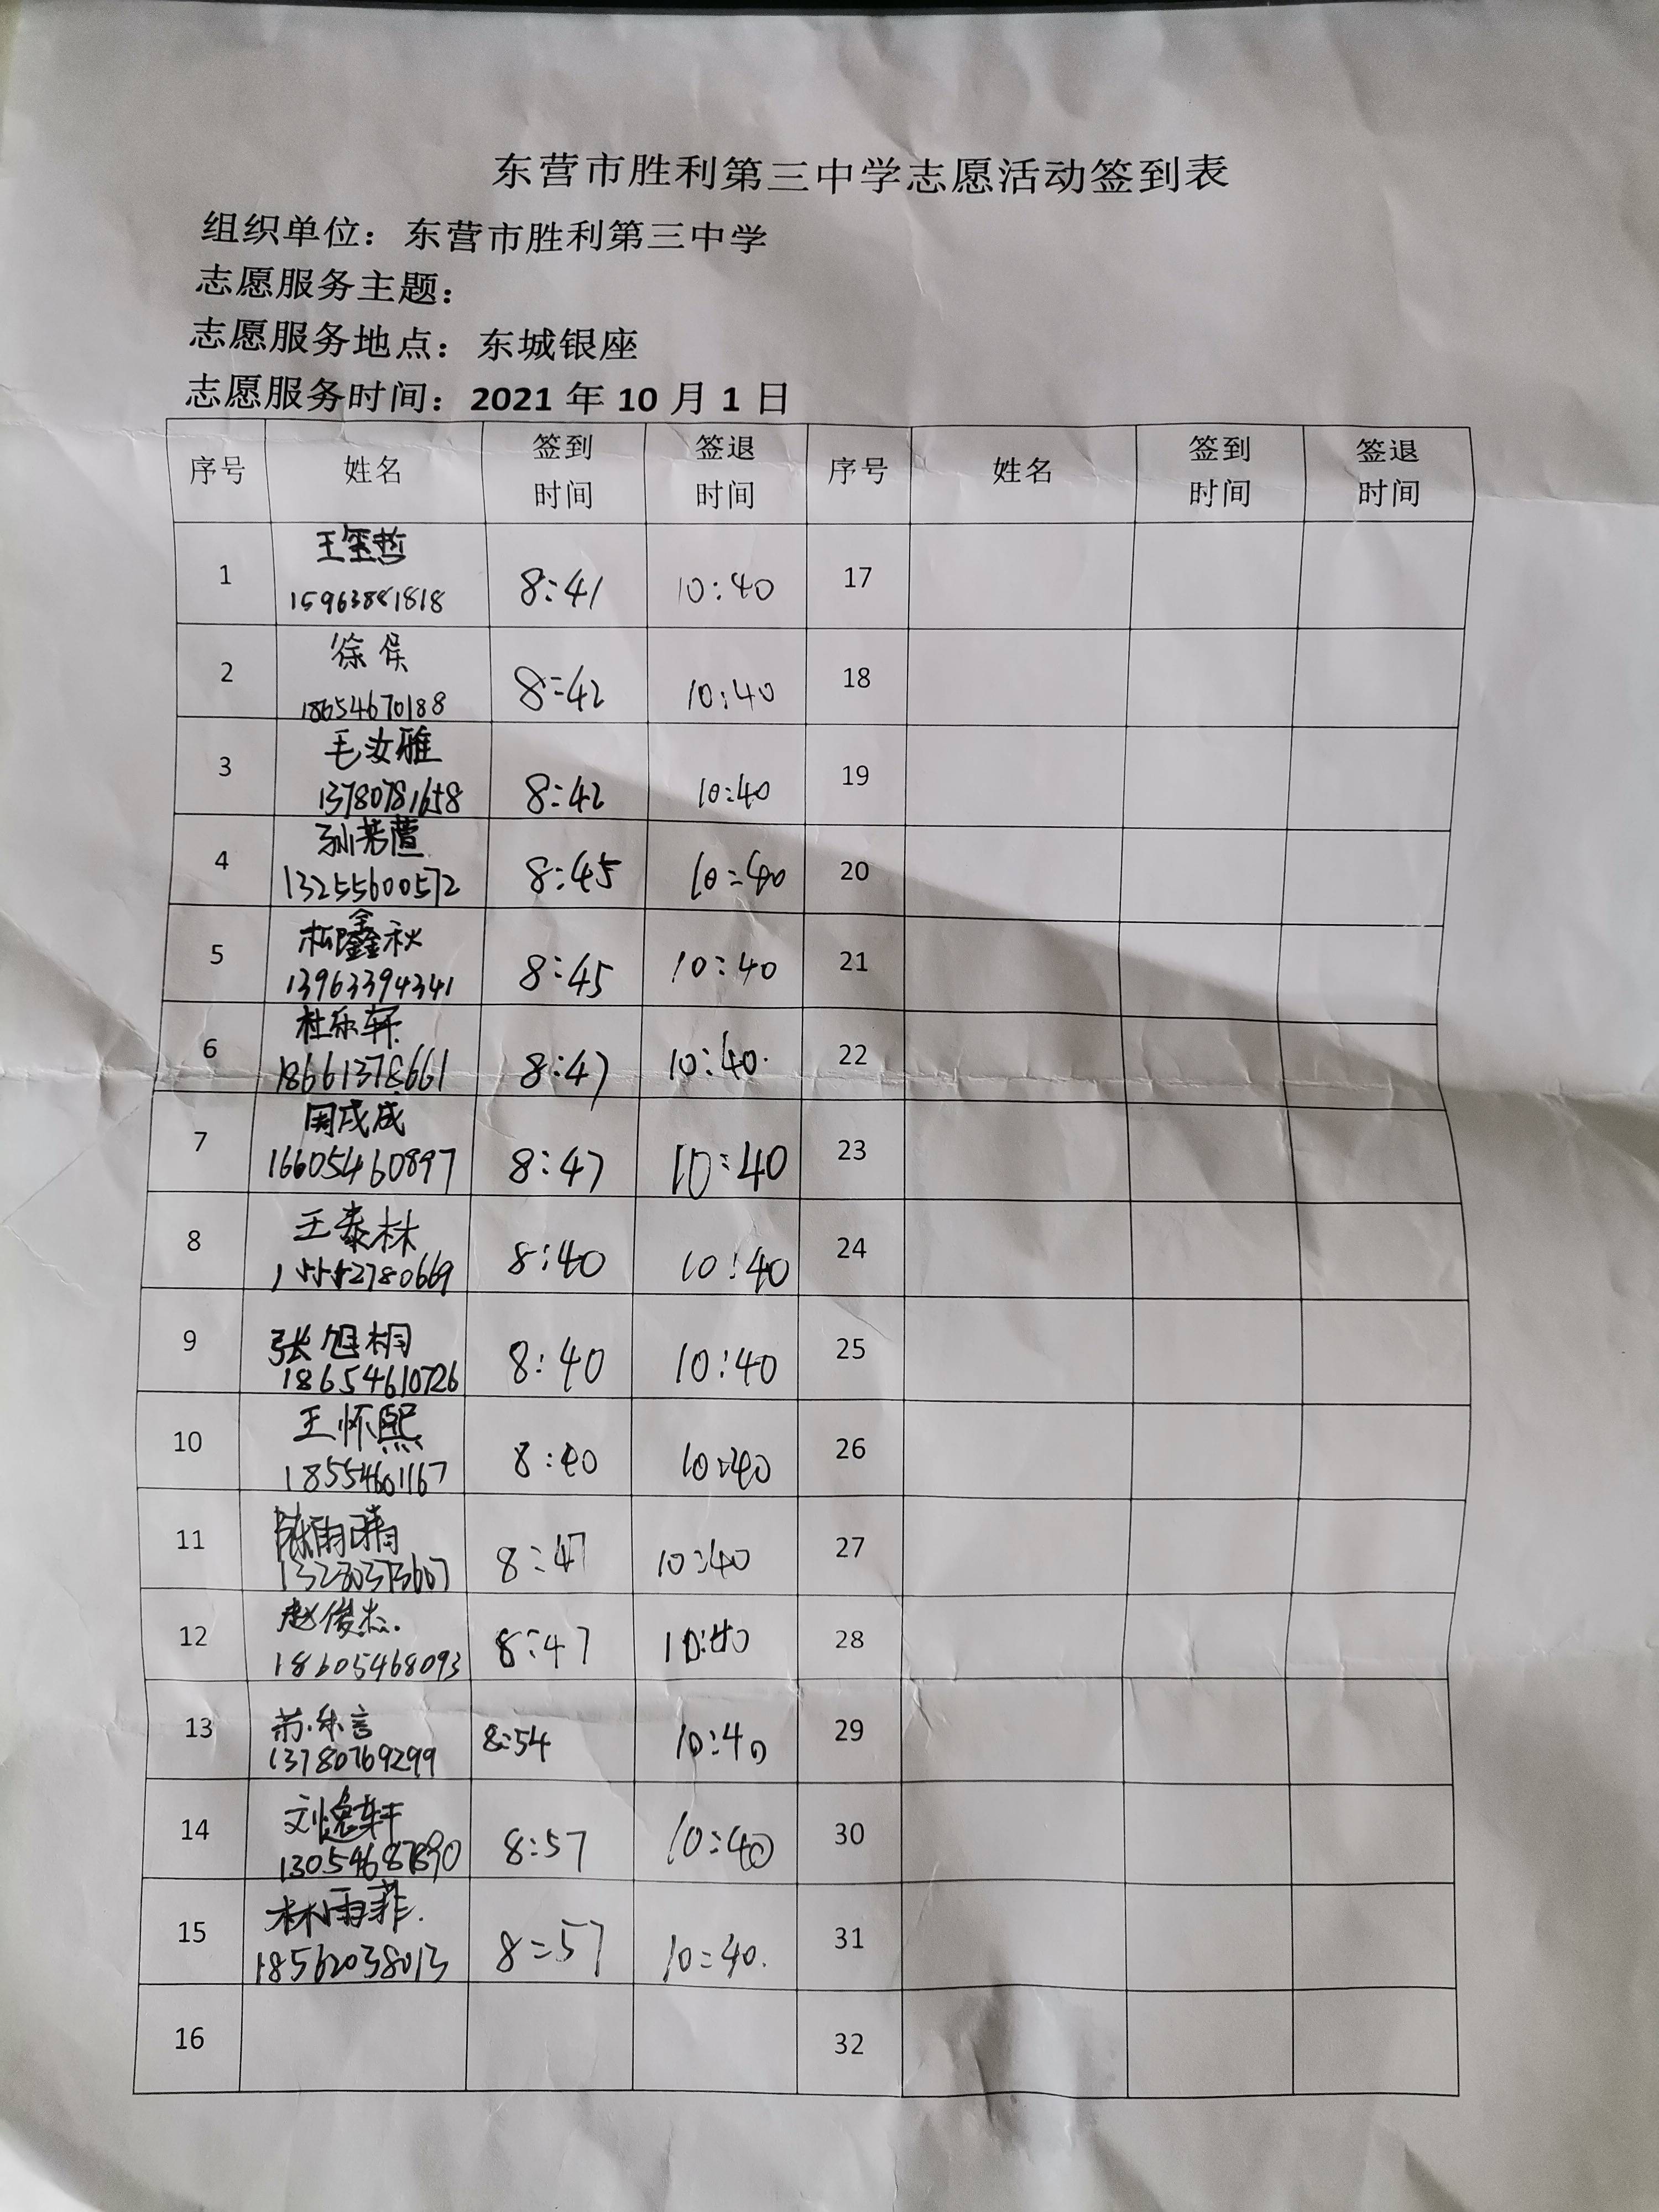 东营市胜利第三中学志愿活动签到表
组织单位：东营市胜利第三中学
志愿服务主题：
志愿服务地点：东城银座
志愿服务时间：2021 年 10 月 1 日
序号 姓名 签到时间 签退时间 序号 姓名 签到时间 签退时间
1 王玺哲 8:41 10:40 17
15963881818
2 徐 8:42 10:40 18
18654670188
3 毛汝雅 8:42 10:40 19
13780781658
4 孙芳萱 8:45 10:40 20
13255600572
5 鑫秋 8:45 10:40 21
13963394341
6 杜乐轩 8:47 10:40 22
18661378661
7 周成成 8:47 10:40 23
16605460897
8 王泰林 8:40 10:40 24
15552780669
9 张旭桐 8:40 10:40 25
18654610726
10 王怀熙 8:40 10:40 26
18554601167
11 陈雨晴 8:47 10:40 27
12 赵俊杰 8:47 10:40 28
18605468093
13 苏乐言 8:54 10:40 29
13780769299
14 刘逸轩 8:57 10:40 30
15 林雨菲 8:57 10:40 31
18562038013
16 32